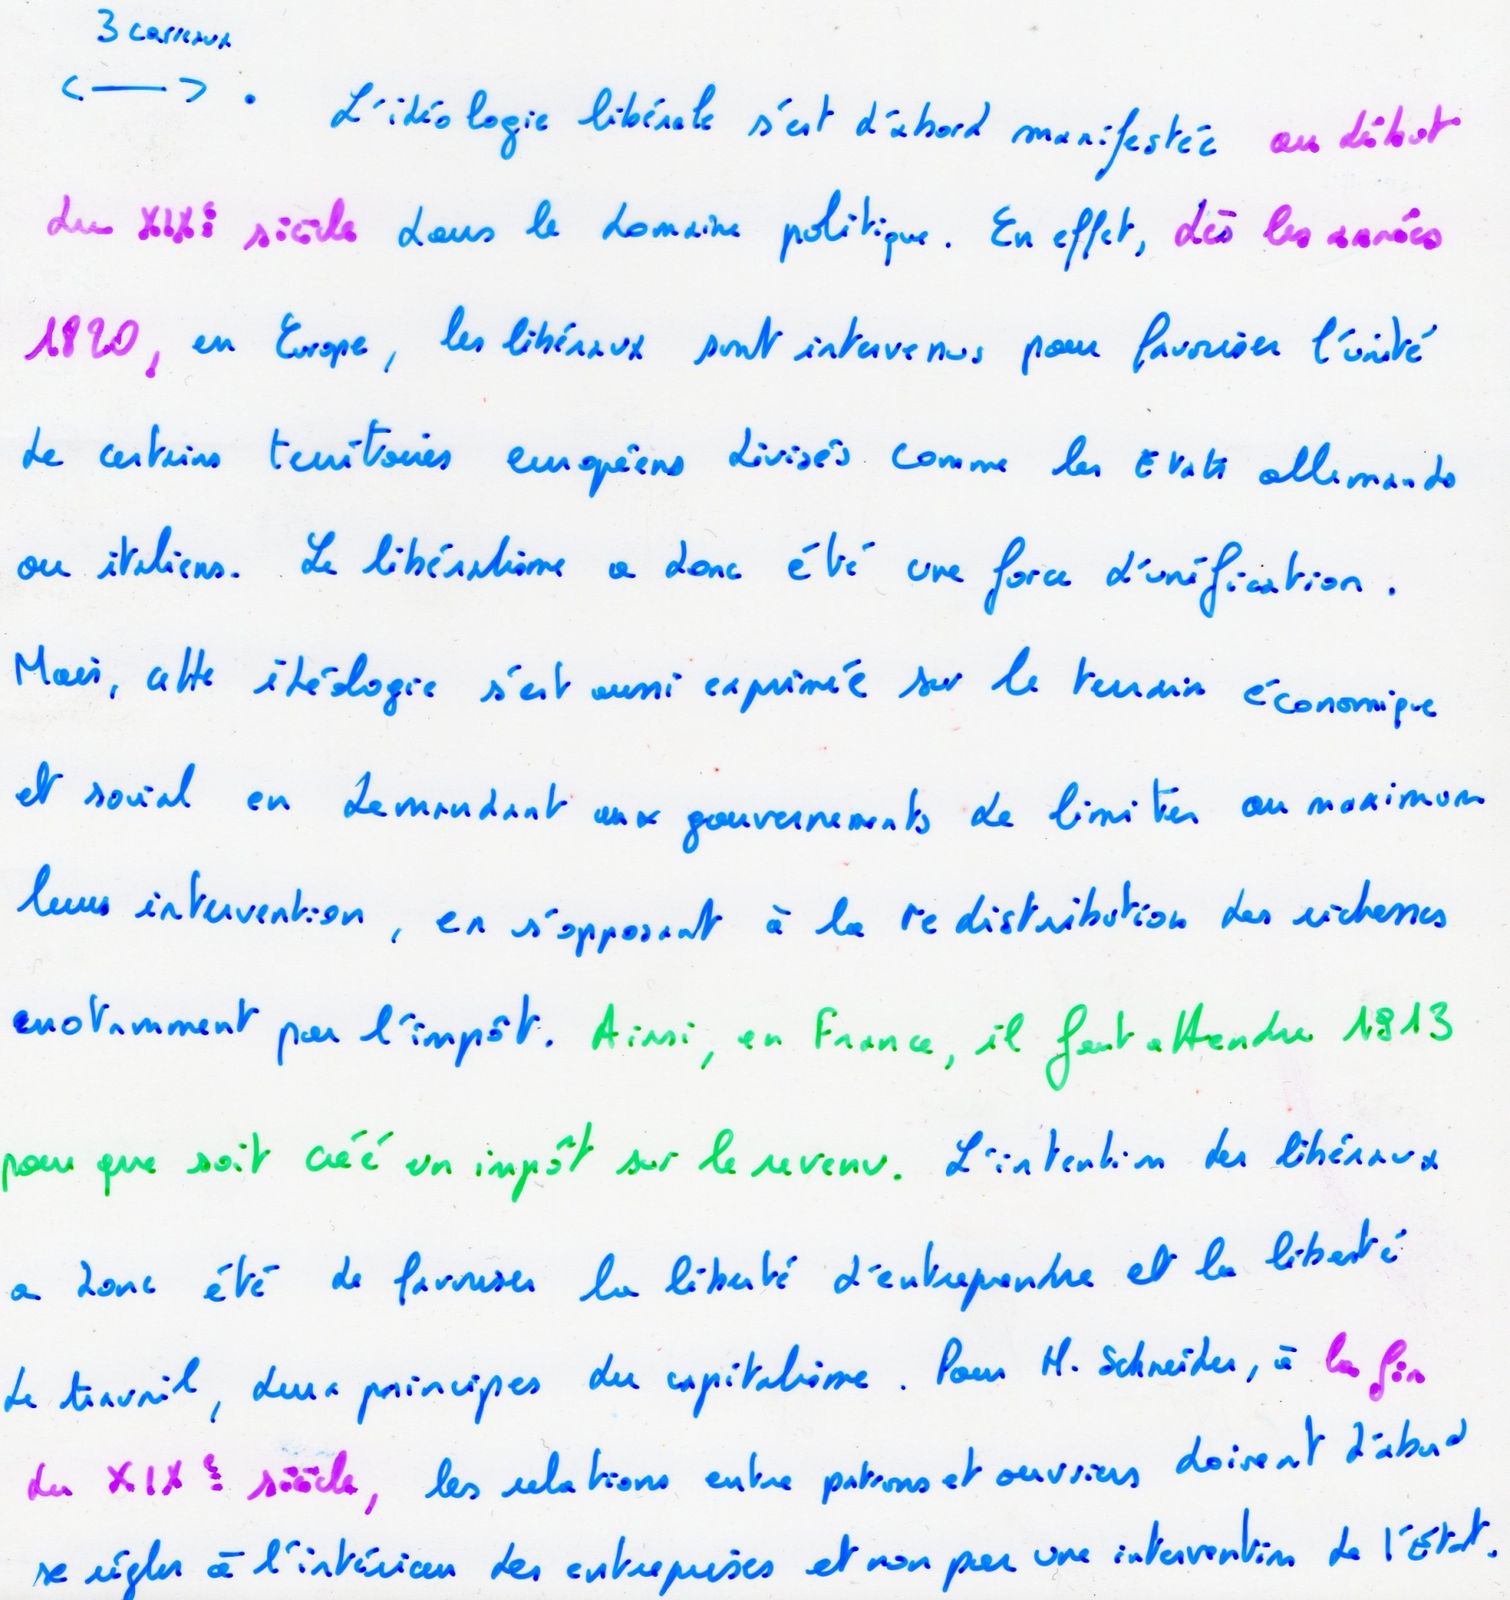 3 carreaux
<—> . L'idéologie libérale s'est d'abord manifestée au début
du XIXe siècle dans le domaine politique. En effet, dès les années
1820, en Europe, les libéraux sont intervenus pour favoriser l'unité
de certains territoires européens divisés comme les Etats allemands
ou italiens. Le libéralisme a donc été une force d'unification.
Mais, cette idéologie s'est aussi exprimée sur le terrain économique
et social en demandant aux gouvernements de limiter au maximum
leur intervention, en s'opposant à la redistribution des richesses
notamment par l'impôt. Ainsi, en France, il faut attendre 1913
pour que soit créé un impôt sur le revenu. L'intention des libéraux
a donc été de favoriser la liberté d'entreprendre et la liberté
de travail, deux principes du capitalisme. Pour M. Schneider, à la fin
du XIXe siècle, les relations entre patrons et ouvriers doivent d'abord
se régler à l'intérieur des entreprises et non par une intervention de l'État.